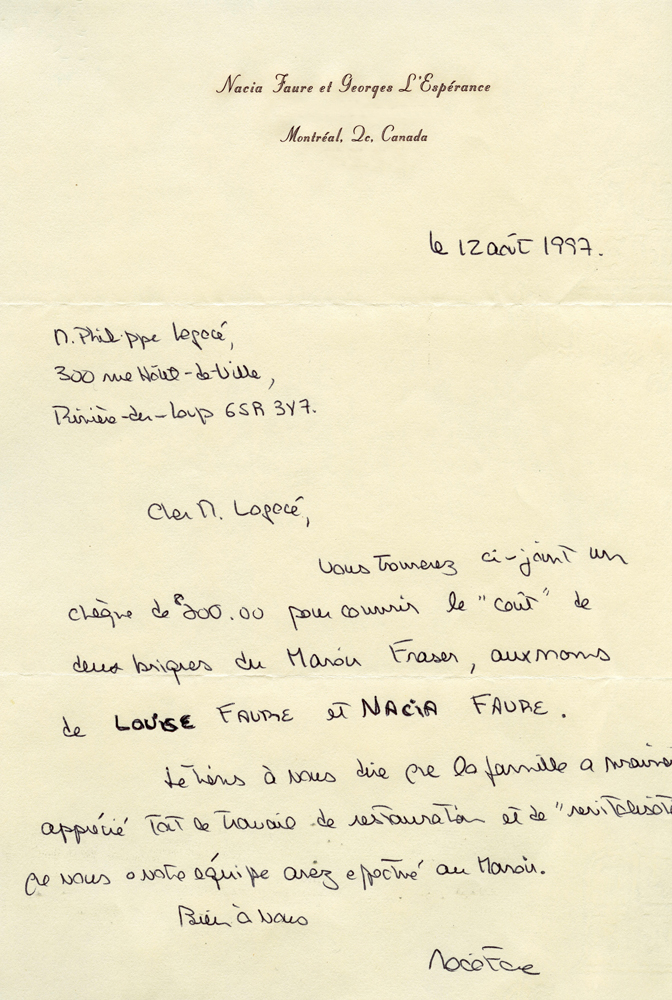 Nacia Faure et Georges L'Espérance
Montréal, Qc, Canada
le 12 août 1997.
M. Philippe Lagacé,
300 rue Hôtel-de-Ville,
Rivière-du-Loup G5R 3Y7.
Cher M. Lagacé,
Vous trouverez ci-joint un
chèque de $200.00 pour couvrir le "coût" de
deux briques du Manoir Fraser, aux noms
de LOUISE FAURE et NACIA FAURE.
Je tiens à vous dire que la famille a
apprécié tout ce travail de restauration et de "revitalisat
que vous & votre équipe avez effectué au Manoir.
Bien à vous